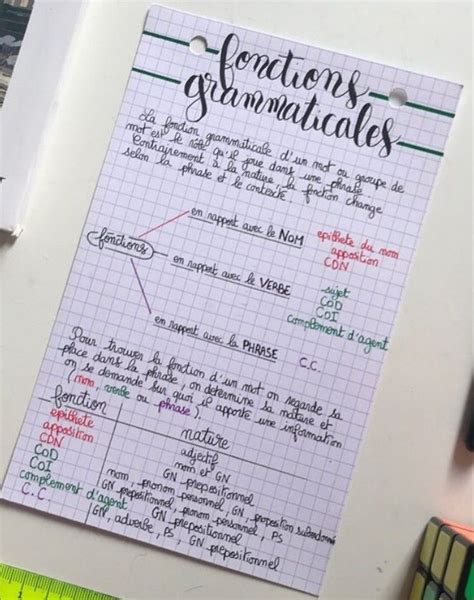 fonctions
grammaticales
La fonction grammaticale d'un mot ou groupe de
mot est le rôle qu'il joue dans une phrase.
Contrairement à la nature, la fonction change
selon la phrase et le contexte.
fonctions
en rapport avec le NOM
épithète du nom
apposition
CDN
en rapport avec le VERBE
sujet
COD
COI
complément d'agent
en rapport avec la PHRASE
C.C.
Pour trouver la fonction d'un mot on regarde sa
place dans la phrase, on détermine sa nature et
on se demande sur quoi il apporte une information
(nom, verbe ou phrase)
fonction
nature
épithète
adjectif
apposition
nom et GN
CDN
GN prépositionnel
COD
nom, pronom personnel, GN, proposition subordonnée
COI
GN prépositionnel, pronom personnel, PS
complément d'agent
GN prépositionnel
C.C.
GN, adverbe, PS, GN prépositionnel